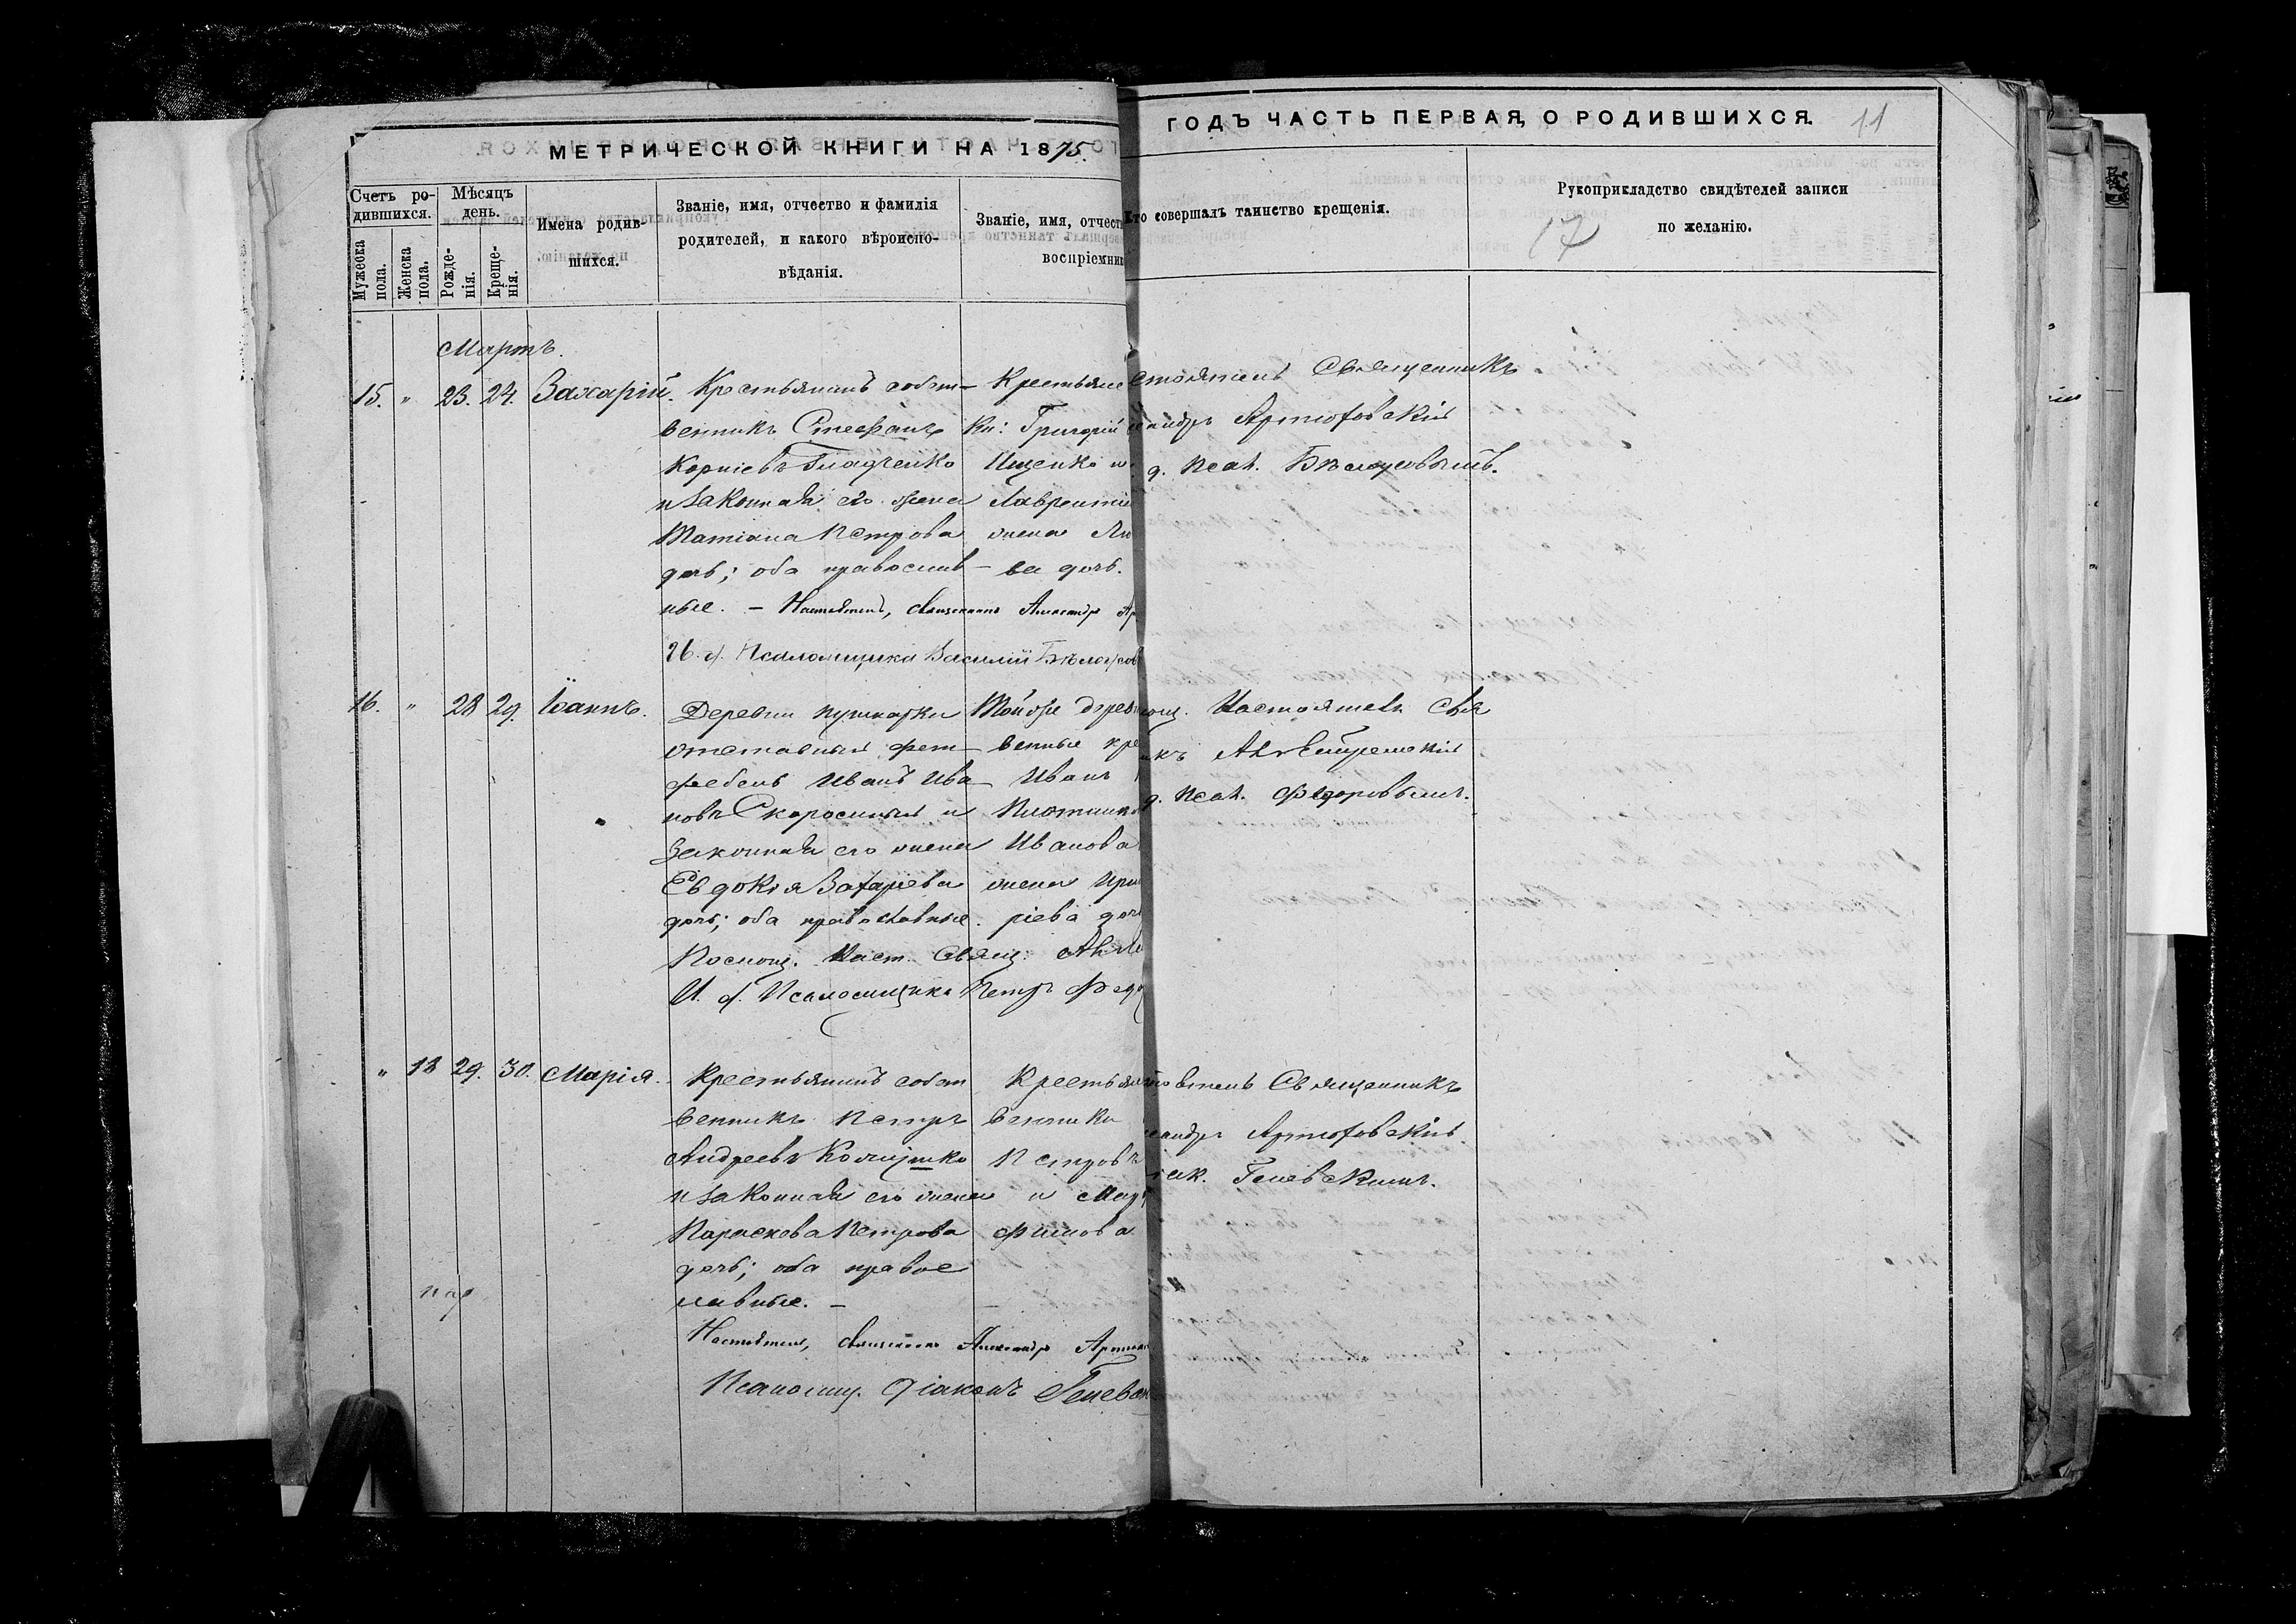 МЕТРИЧЕСКОЙ КНИГИ НА 1875.
ГОДЪ ЧАСТЬ ПЕРВАЯ, О РОДИВШИХСЯ. 11
Счетъ ро-
дившихся.
Мужеска пола.
Женска пола.
Мѣсяцъ
день.
Рожде-
нія.
Креще-
нія.
Имена родив-
шихся.
Званіе, имя, отчество и фамилія
родителей, и какого вѣроиспо-
вѣданія.
Званіе, имя, отчест
воспріемник
Кто совершалъ таинство крещенія.
Рукоприкладство свидѣтелей записи
по желанію.
17
Мартъ.
15. " 23. 24. Захарій.
Крестьянинъ собст-
венникъ Стефанъ
Корніевъ Гладченко
и законная его жена
Татіана Петрова
дочь; оба православ-
ные. – Настоятель, священникъ Александръ Ар
И. д. Псаломщика Василій Бѣлоусов
Крестьяне
Кн: Григорій
Ищенко и
Лаврентій
жена Ян
ва дочь.
стоятель Священникъ
сандръ Артюховскій
д. псал. Бѣлоусовымъ.
16. " 28 29. Іоаннъ.
Деревни Пушкарки
отставный фельд-
фебель Иванъ Ива-
новъ Скоросиный и
законная его жена
Евдокія Захаріева
дочь; оба православные.
Помощ. Наст. Свящ.
И. д. Псаломщика Петръ Федо
Той же дерев
венные кре
Иванъ
Плотник
Иванова
жена Ири
ріева доч
мощ. Настоятеля Свя
икъ
д. псал. Федоровымъ.
" 18 29. 30. Марія.
Крестьянинъ собст
венникъ Петръ
Андреевъ Коміушко
и законная его жена
Параскева Петрова
дочь; оба правос
лавные. –
Настоятель, священникъ Александръ Артюхо
Псаломщ. Діаконъ Геневск
Крестьян
венники
Петровъ
и Мар
фимова
тоятель Священникъ
сандръ Артюховскій.
іак. Геневскимъ.